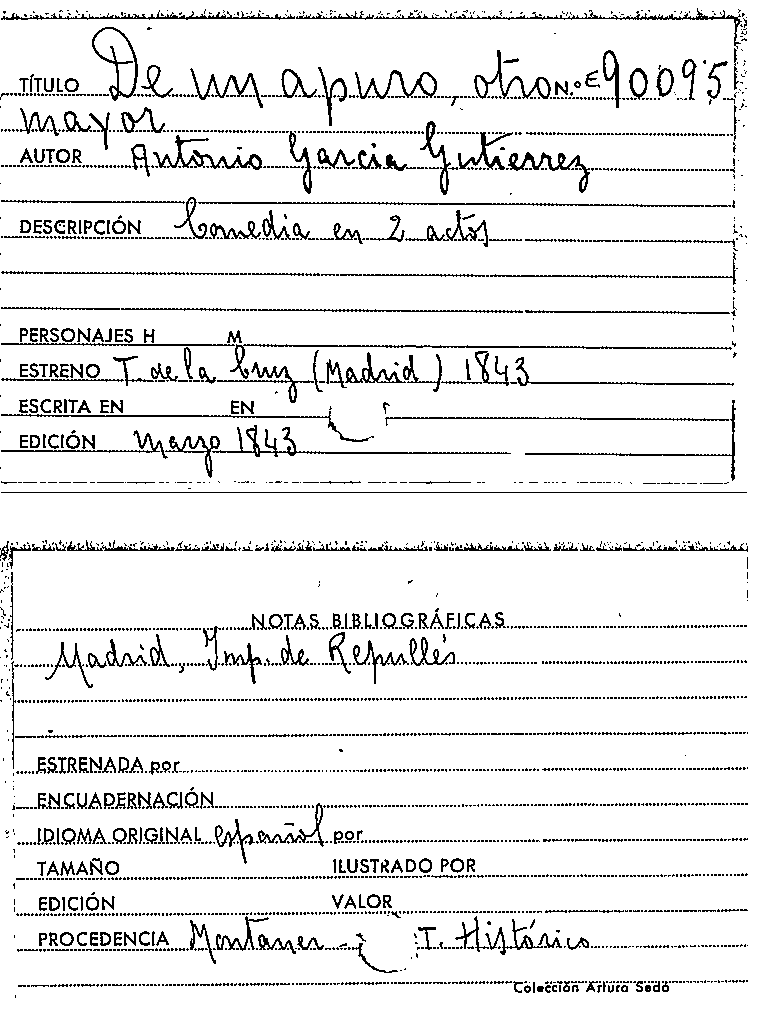 TÍTULO De un apuro, otro N.º E 90095
mayor
AUTOR Antonio García Gutierrez
DESCRIPCIÓN Comedia en 2 actos
PERSONAJES H M
ESTRENO T. de la Cruz (Madrid) 1843
ESCRITA EN EN
EDICIÓN Marzo 1843
NOTAS BIBLIOGRÁFICAS
Madrid, Imp. de Repullés
ESTRENADA por
ENCUADERNACIÓN
IDIOMA ORIGINAL español por
TAMAÑO ILUSTRADO POR
EDICIÓN VALOR
PROCEDENCIA Montaner - T. Histórico
Colección Arturo Sedó